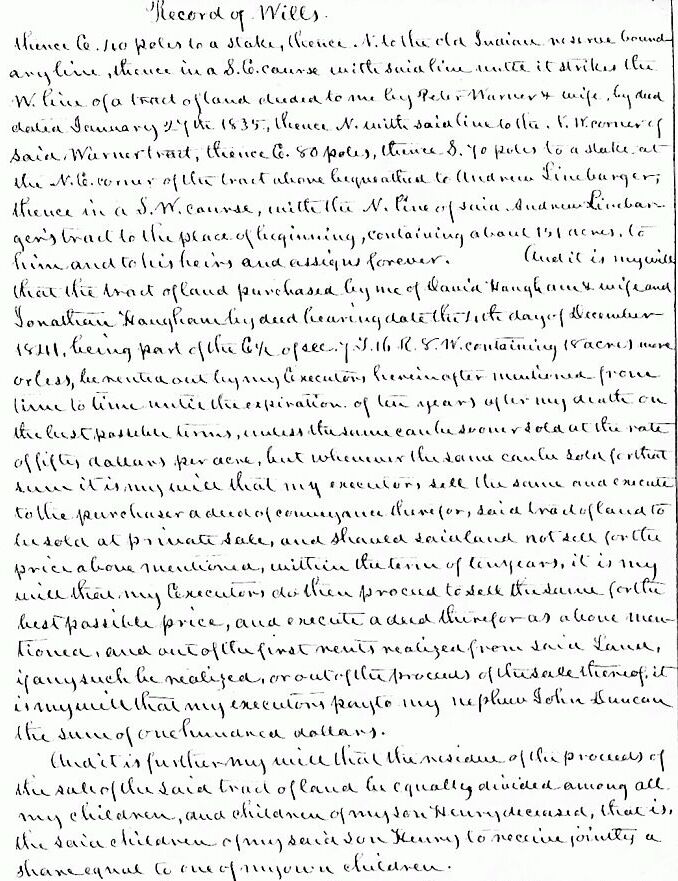 Record of Wills.
thence E. 110 poles to a stake, thence N. to the old Indian reserve bound-
ary line, thence in a S.E. course with said line untill it strikes the
W. line of a tract of land deeded to me by Peter Warner & wife, by deed
dated January 27th 1835, thence N. with said line to the N.W. corner of
said Warner tract, thence E. 80 poles, thence S. 70 poles to a stake at
the N.E. corner of the tract above bequeathed to Andrew Linebarger,
thence in a S.W. course, with the N. line of said Andrew Linebar-
ger's tract to the place of beginning, containing about 151 acres, to
him and to his heirs and assigns forever. And it is my will
that the tract of land purchased by me of David Haugham & wife and
Jonathan Haugham by deed bearing date the 11th day of December
1841, being part of the E½ of sec. 7 T. 16 R. 8. W. containing 18 acres more
or less, be rented out by my Executors hereinafter mentioned from
time to time untill the expiration of ten years after my death on
the best possible terms, unless the same can be sooner sold at the rate
of fifty dollars per acre, but whenever the same can be sold for that
sum it is my will that my executors sell the same and execute
to the purchaser a deed of conveyance therefor, said tract of land to
be sold at private sale, and should said land not sell for the
price above mentioned, within the term of ten years, it is my
will that my Executors do then proceed to sell the same for the
best possible price, and execute a deed therefor as above men-
tioned, and out of the first rents realized from said Land,
if any such be realized, or out of the proceeds of the sale thereof, it
is my will that my executors pay to my nephew John Duncan
the sum of one hundred dollars.
And it is further my will that the residue of the proceeds of
the sale of the said tract of land be equally divided among all
my children, and children of my son Henry deceased, that is,
the said children of my said son Henry to receive jointly a
share equal to one of my own children.